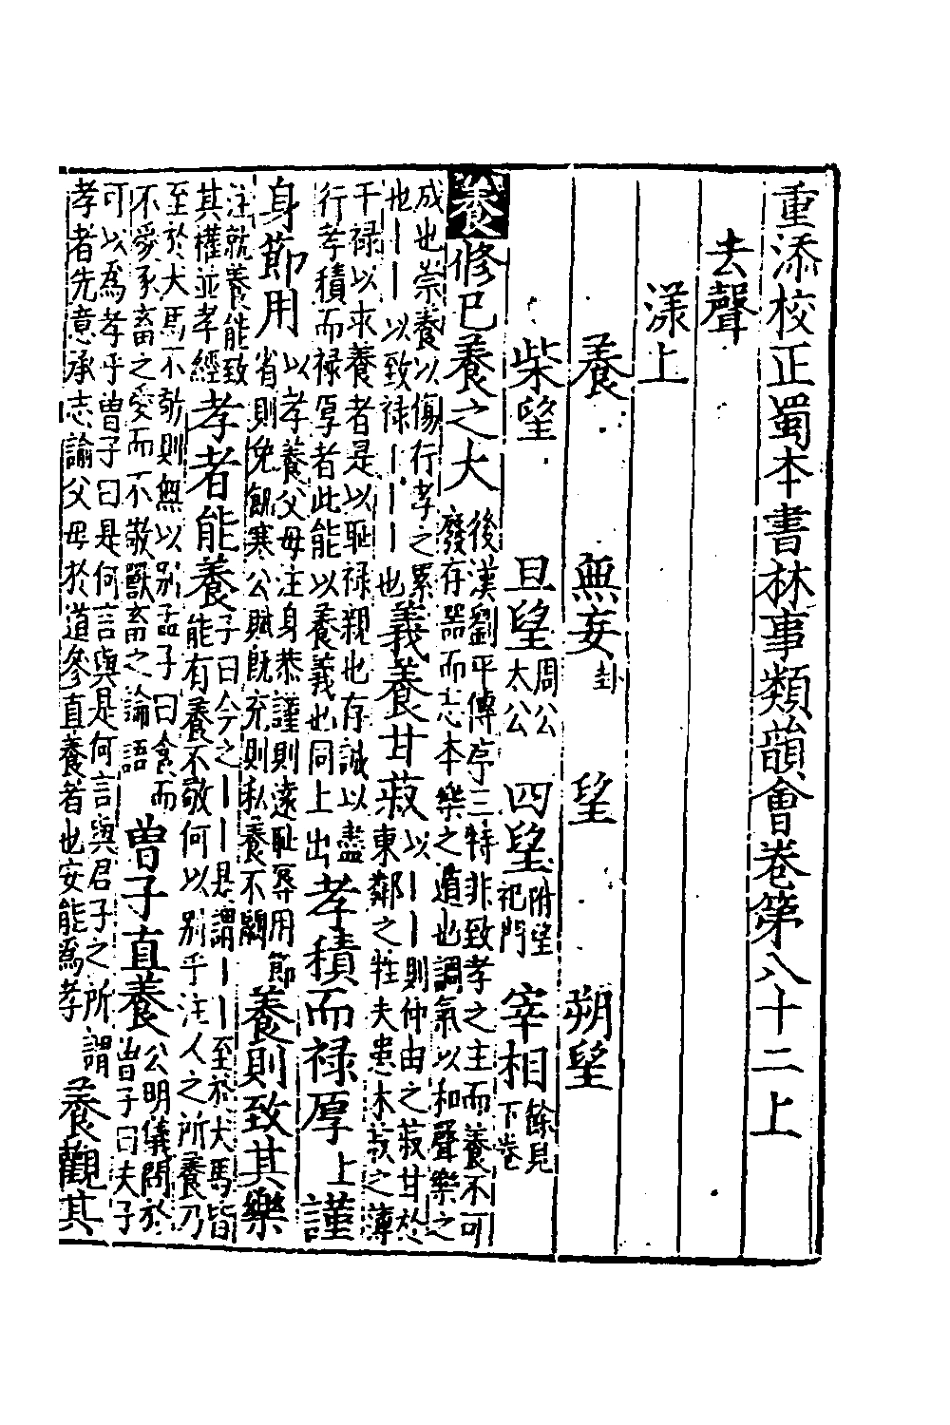 重添校正蜀本書林事類韻會卷第八十二上
去聲
漾上
養 無妄卦 望 朔望
柴望 旦望周公太公 四望附望祀門 宰相餘見下卷
養 修已養之大 後漢劉平傳序三牲非致孝之主而養不可廢存器而忘本樂之遁也調氣以和聲樂之
成也崇養以傷行孝之累也丨丨以致禄丨丨丨也 義養甘菽 以丨丨則仲由之菽甘於東鄰之牲夫患水菽之薄
干禄以求養者是以耻禄親也存誠以盡行孝積而禄厚者此能以養義也同上出 孝積而禄厚上 謹
身節用 以孝養父母注身恭謹則遠耻辱用節省則免飢寒公賦既充則私養不闕 養則致其樂
注就養能致其懽並孝經 孝者能養 子曰今之丨丨是謂丨丨至於犬馬皆能有養不敬何以別乎注人之所養乃
至於犬馬不敬則無以別孟子曰食而不愛豕畜之愛而不敬獸畜之論語 曾子直養 公明儀問於曾子曰夫子
可以爲孝乎曾子曰是何言與是何言與君子之所謂孝者先意承志諭父母於道參直養者也安能爲孝 養觀其